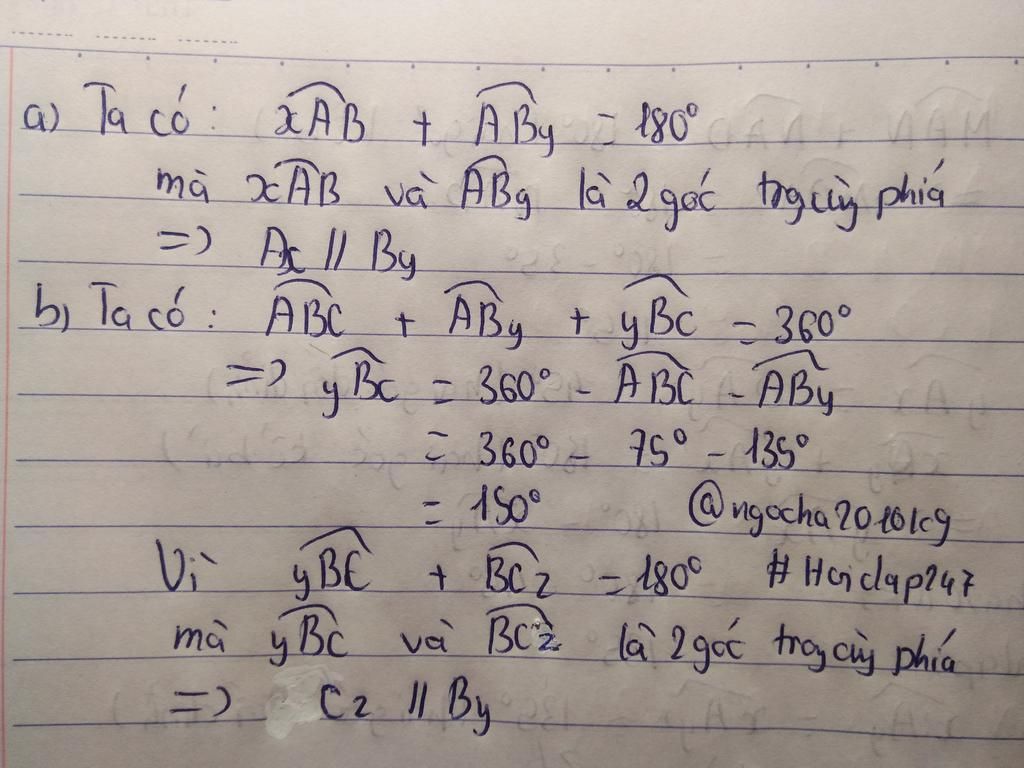 a) Ta có: xAB + ABy = 180°
mà xAB và ABy là 2 góc trg cùg phía
=> Ax // By
b) Ta có: ABC + ABy + yBC = 360°
=> yBC = 360° - ABC - ABy
= 360° - 75° - 135°
= 150° @ngocha2010lc9
Vì yBC + BCz = 180° #Hoidap247
mà yBC và BCz là 2 góc trog cùg phía
=> Cz // By